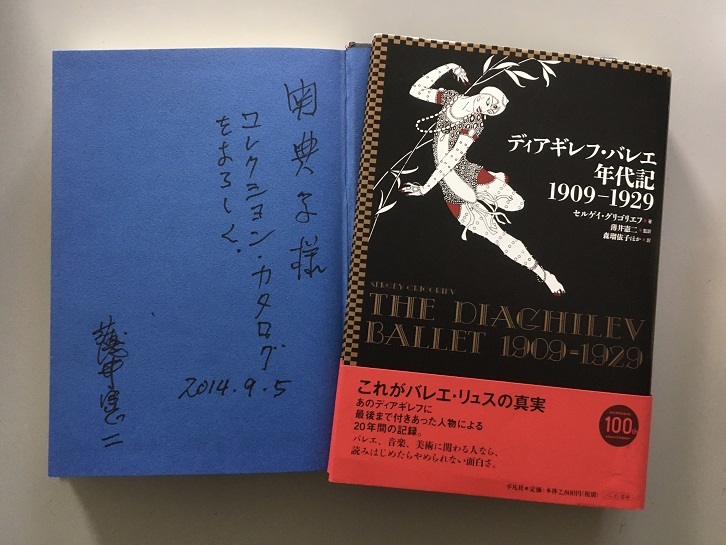 関典子様
コレクション・カタログ
をよろしく.
2014.9.5
薄井憲二
ディアギレフ・バレエ
年代記
1909-1929
セルゲイ・グリゴリエフ 著
薄井憲二・監訳
森瑠依子ほか・訳
SERGEY GRIGORIEV
THE DIAGHILEV
BALLET 1909-1929
これがバレエ・リュスの真実
あのディアギレフに
最後まで付きあった人物による
20年間の記録。
バレエ、音楽、美術に関わる人なら、
読みはじめたらやめられない面白さ。
100th
平凡社●定価:本体2,800円(税別)